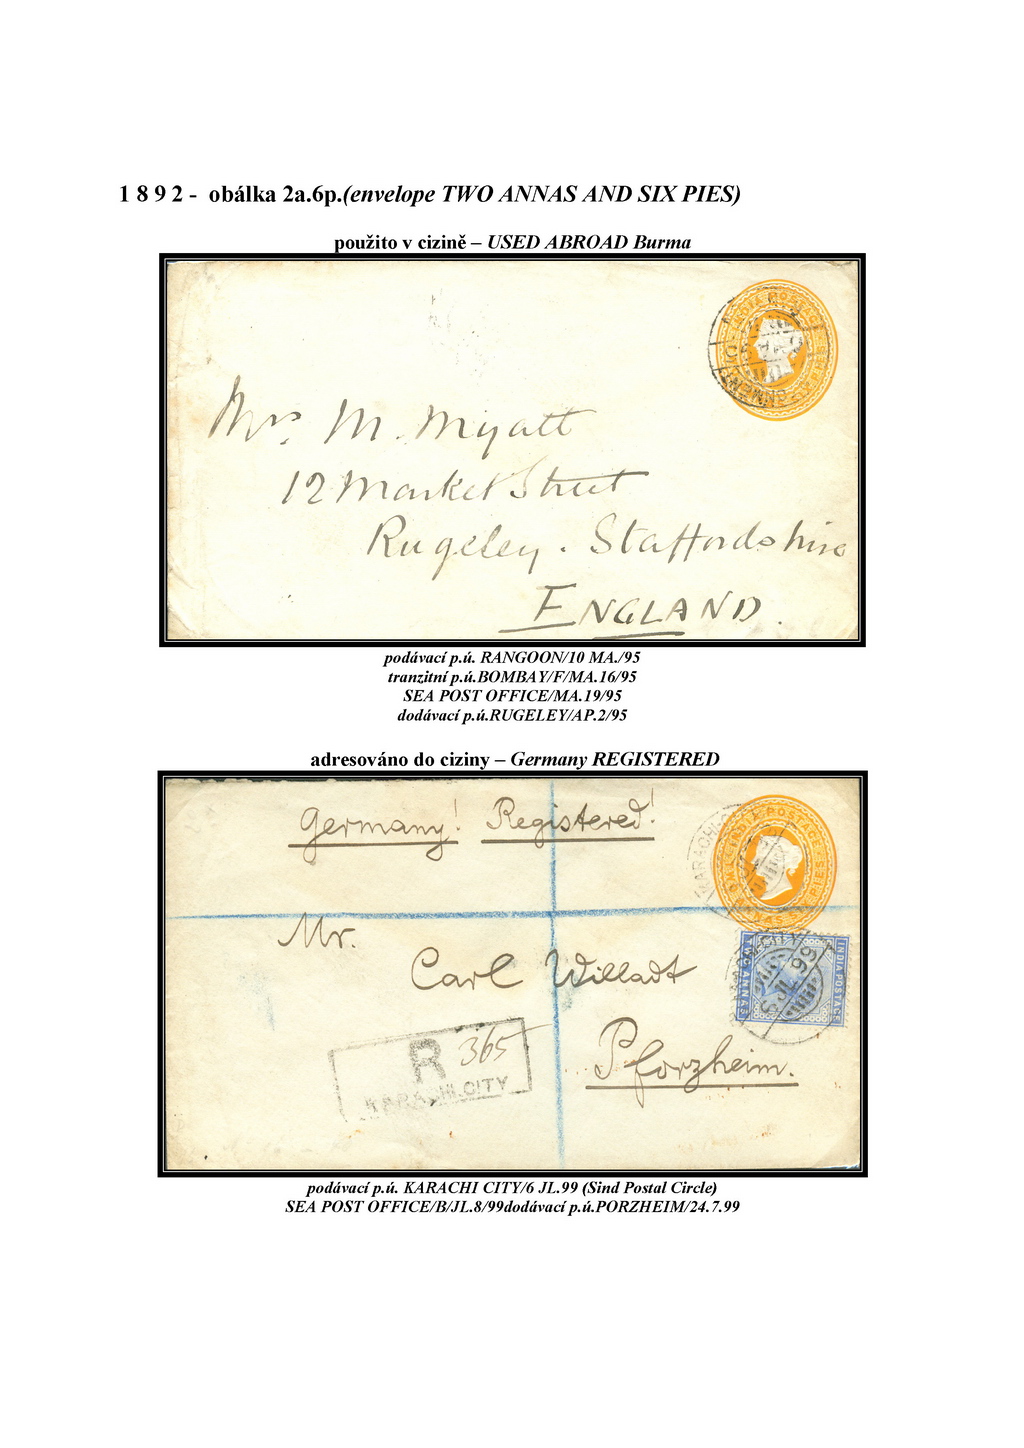 1 8 9 2 - obálka 2a.6p.(envelope TWO ANNAS AND SIX PIES)
použito v cizině – USED ABROAD Burma
INDIA POSTAGE
Mrs. M. Myatt
12 Market Street
Rugeley. Staffordshire
ENGLAND.
podávací p.ú. RANGOON/10 MA./95
tranzitní p.ú.BOMBAY/F/MA.16/95
SEA POST OFFICE/MA.19/95
dodávací p.ú.RUGELEY/AP.2/95
adresováno do ciziny – Germany REGISTERED
Germany! Registered!
INDIA POSTAGE
ANNAS
PIES
KARACHI
Mr.
Carl Willadt
Pforzheim.
R 365
KARACHI.CITY
INDIA POSTAGE
TWO ANNAS
CITY
6 JL 99
podávací p.ú. KARACHI CITY/6 JL.99 (Sind Postal Circle)
SEA POST OFFICE/B/JL.8/99dodávací p.ú.PORZHEIM/24.7.99